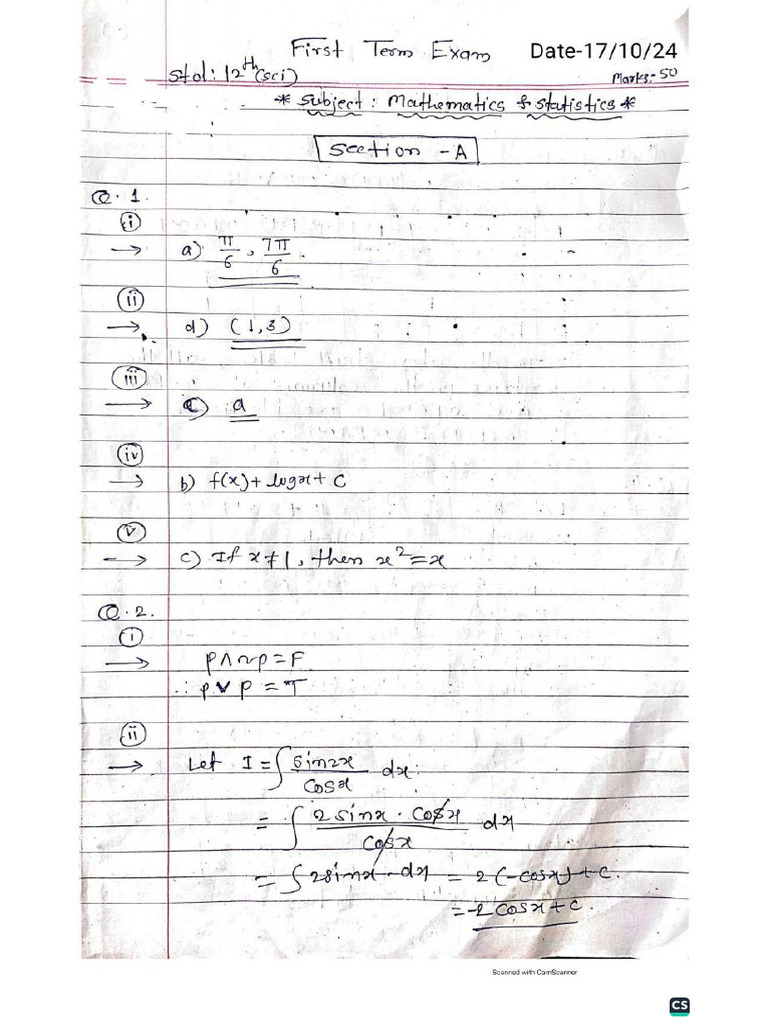 First Term Exam Date-17/10/24
Std: 12th (sci) Marks:-50
* Subject: Mathematics & Statistics *
Section - A
Q. 1.
(i)
→ a) π/6, 7π/6.
(ii)
→ d) (1,3)
(iii)
→ c) a
(iv)
→ b) f(x) + logx + C
(v)
→ c) If x≠1, then x²=x
Q. 2.
(i)
→ p∧~p = F
∴ p∨p = T
(ii)
→ Let I = ∫ sin2x/cosx dx.
= ∫ 2sinx · cosx/cosx dx
= ∫ 2sinx · dx = 2(-cosx) + c.
= -2cosx + c.
Scanned with CamScanner
CS